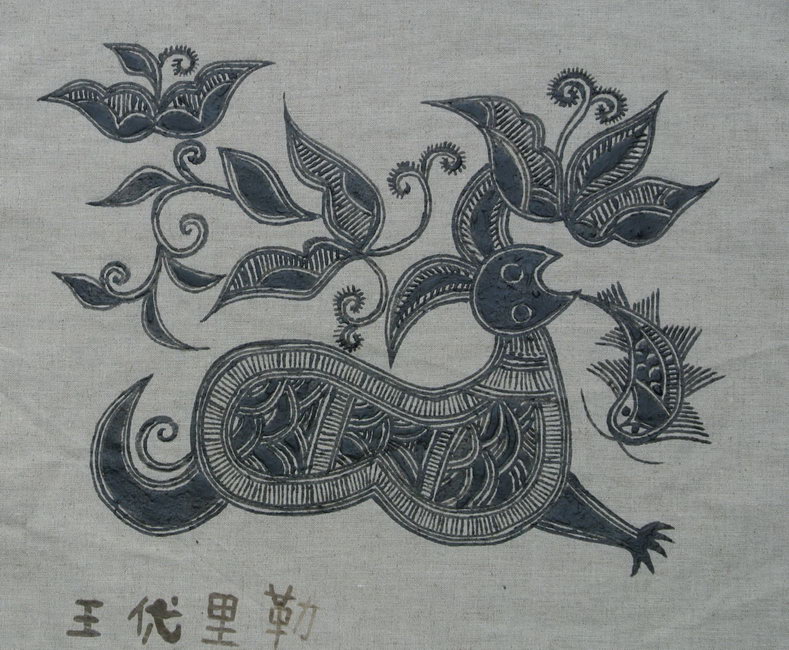 王代里勒